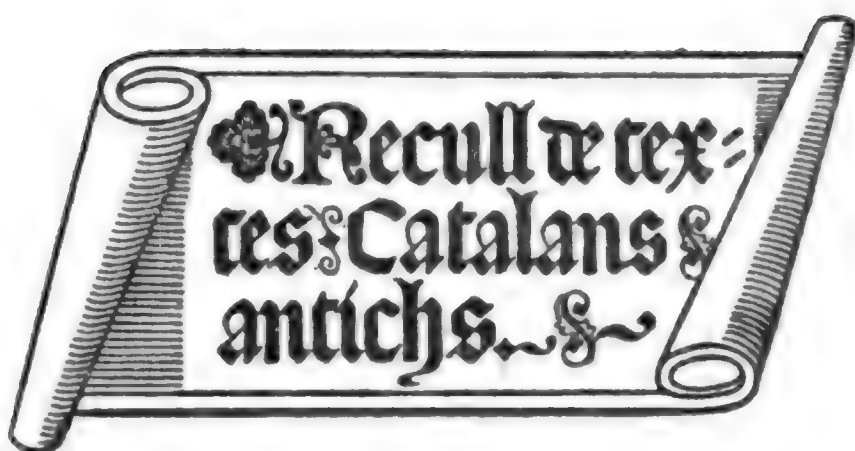 Recull de tex=
tes Catalans
antichs.